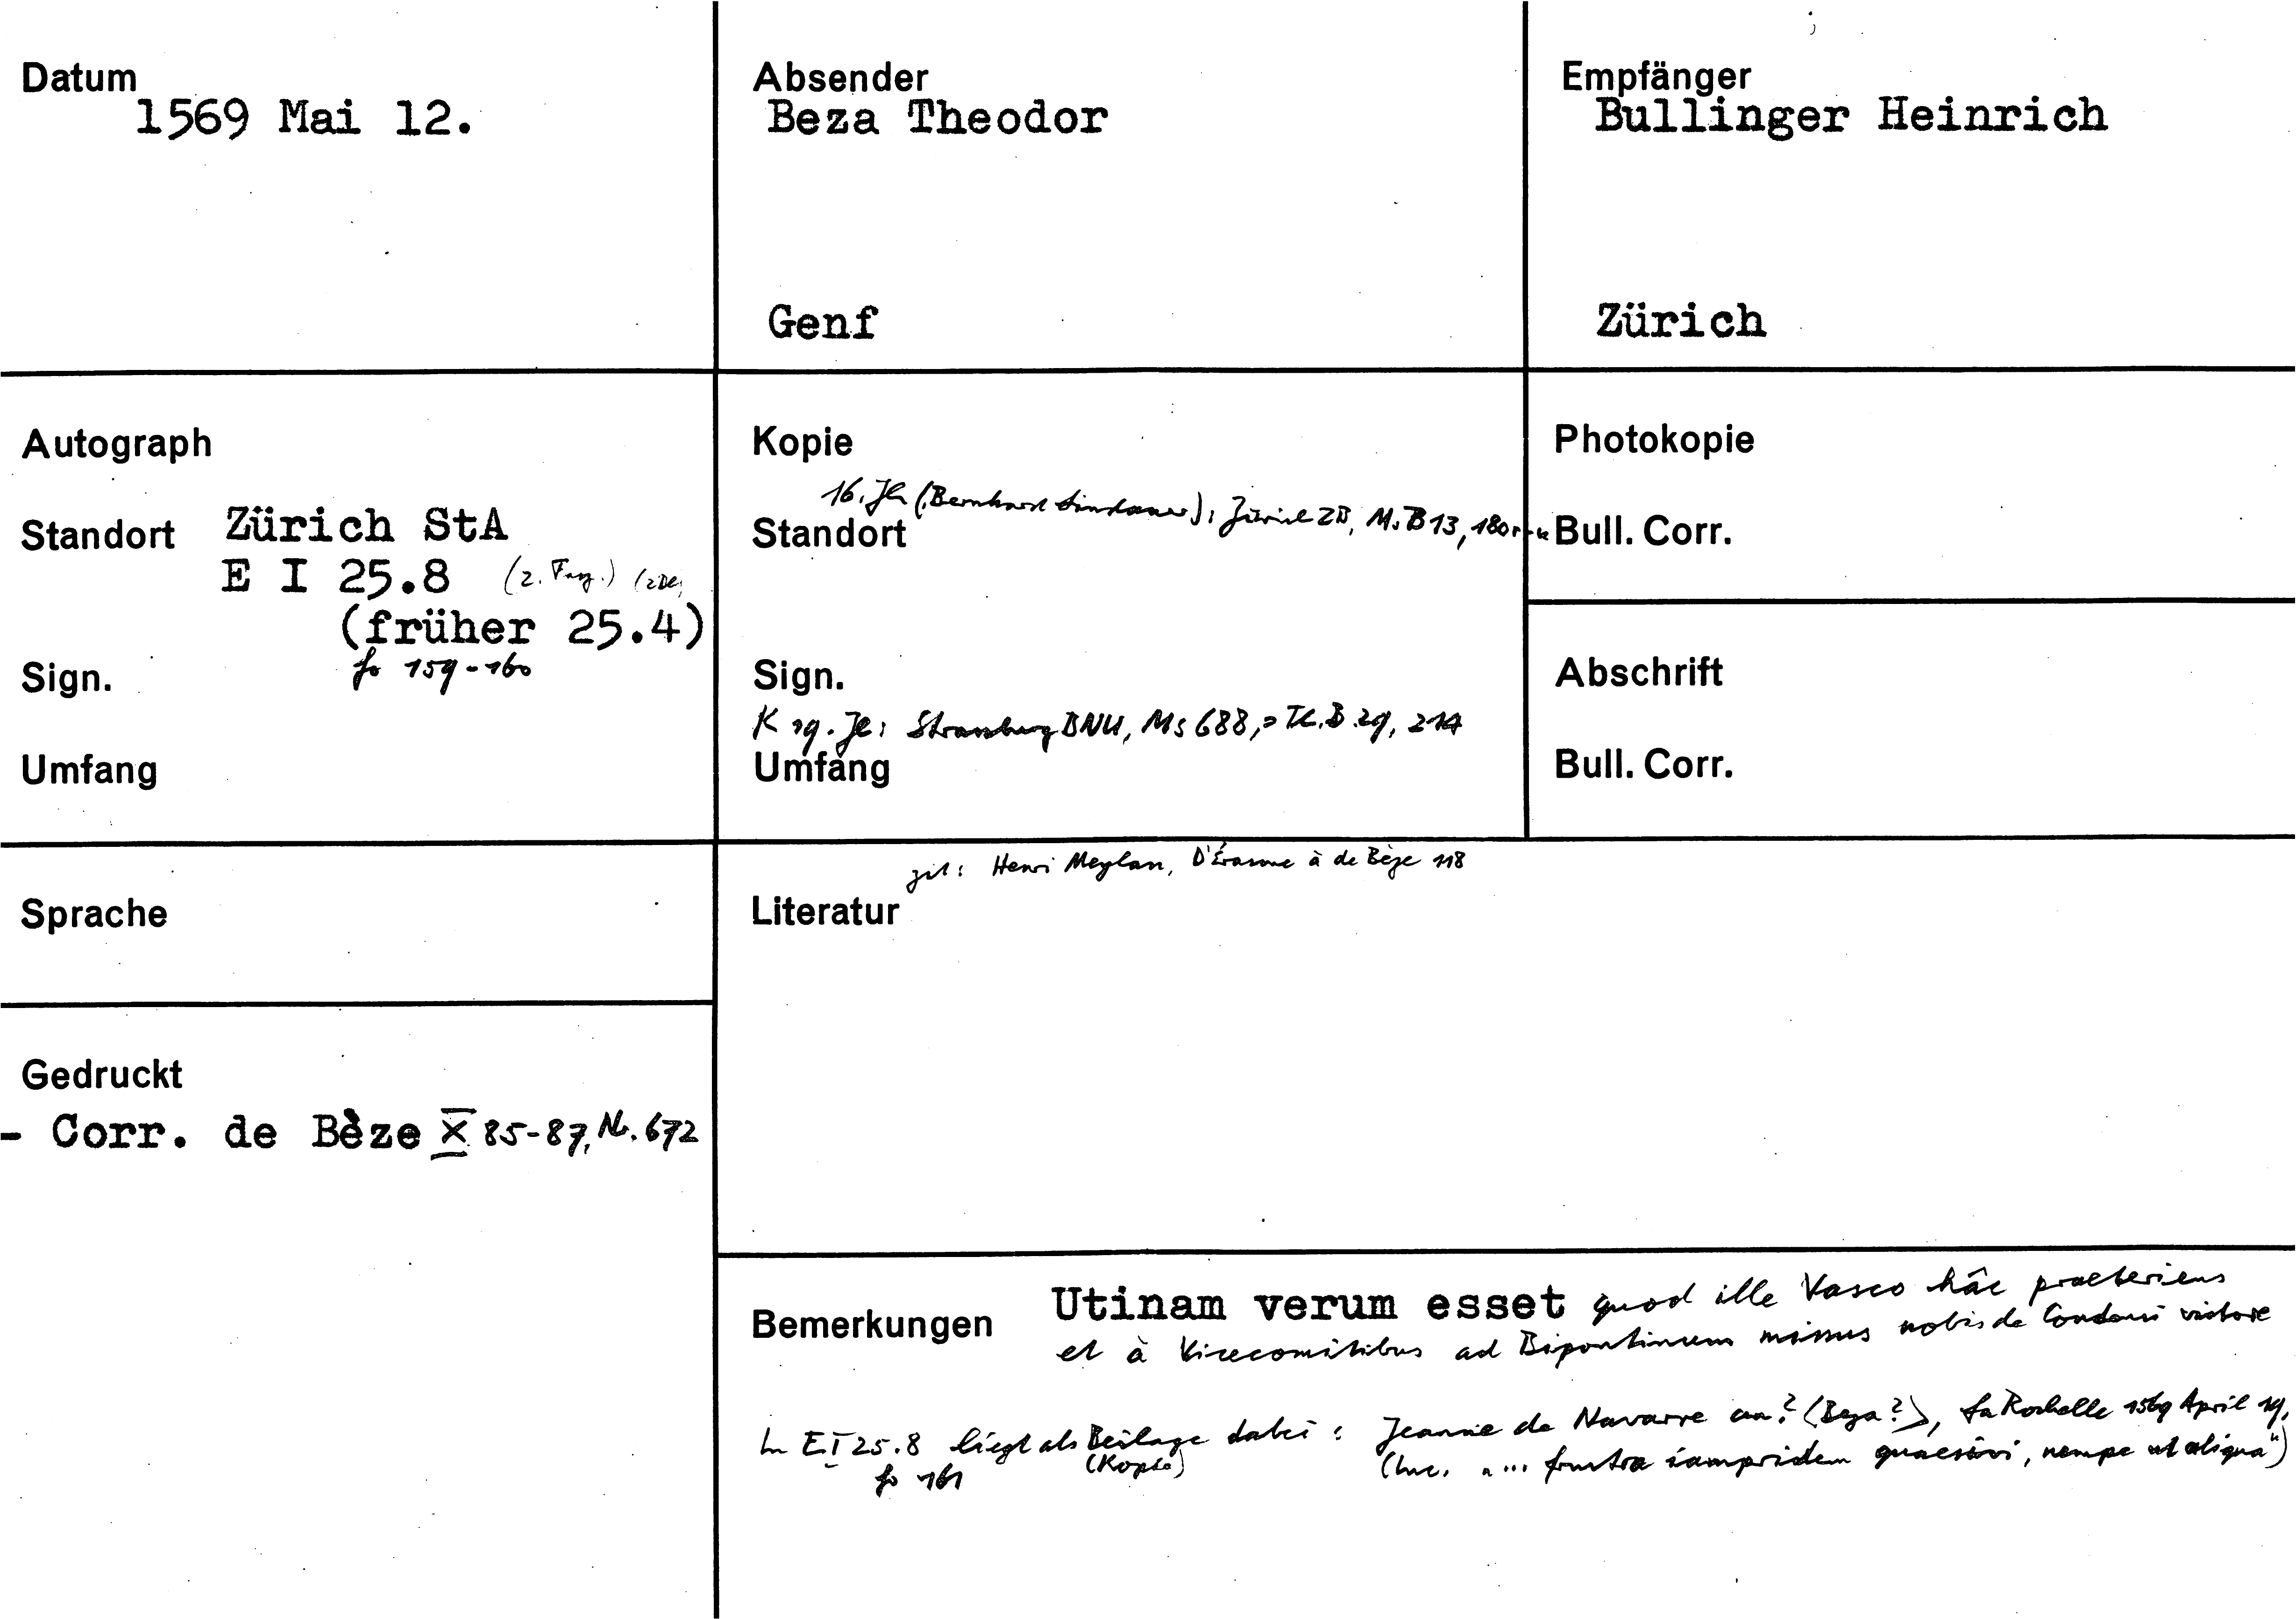 Datum
1569 Mai 12.
Absender
Beza Theodor
Genf
Empfänger
Bullinger Heinrich
Zürich
Autograph
Standort Zürich StA
E I 25.8 (2. Fasz.)
(früher 25.4)
fo 159-160
Sign.
Umfang
Kopie
16. Jh (Bernhard Lindauer); Zürich ZB, Ms B 13, 180r-v
Standort
Sign.
K 19. Jh: Strassburg BNU, Ms 688, = Th. B. 29, 214
Umfang
Photokopie
Bull. Corr.
Abschrift
Bull. Corr.
Sprache
Gedruckt
- Corr. de Bèze X 85-87, Nr. 672
zit: Henri Meylan, D'Érasme à de Bèze 118
Literatur
Bemerkungen Utinam verum esset quod ille Vasco hâc praeteriens
et à Vicecomitibus ad Bipontinum missus nobis de Condaei victore
In E I 25.8 liegt als Beilage dabei: Jeanne de Navarre an? (Beza?), La Rochelle 1569 April 19,
fo 161 (Kopie) (Inc. "... frustra iampridem quaesivi, nempe ut aliqua")